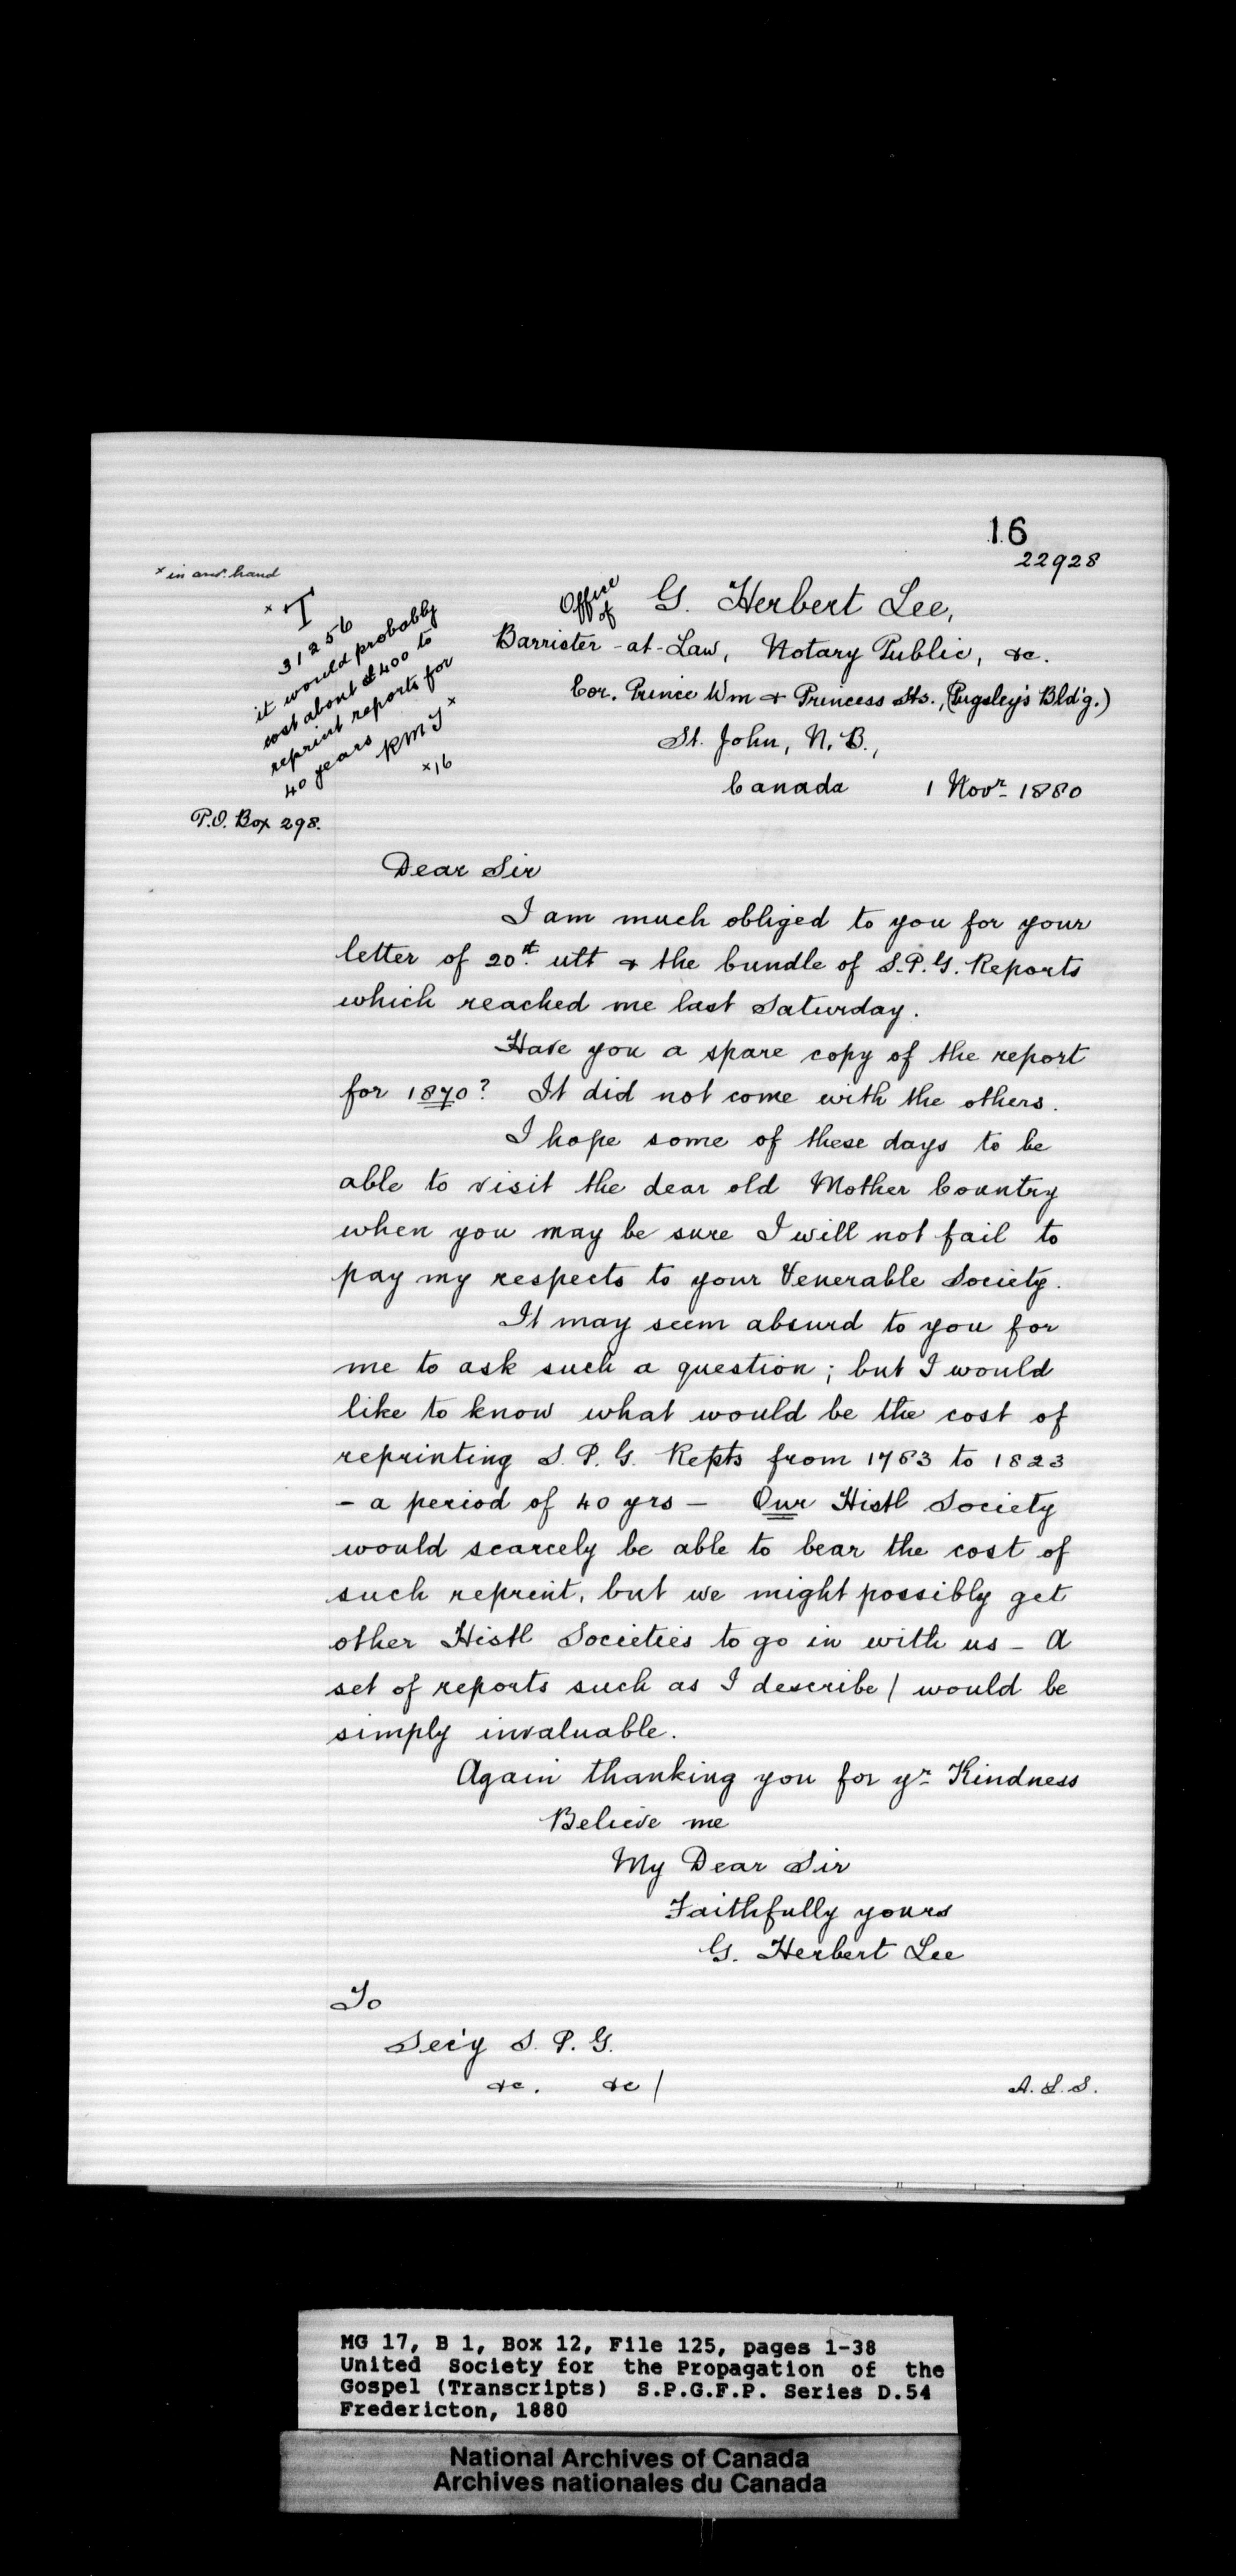 16
22928
x in anr. hand
x I
31256
it would probably
cost about £400 to
reprint reports for
40 years
RMJ x
x16
P.O. Box 298.
Office of G. Herbert Lee,
Barrister-at-Law, Notary Public, &c.
Cor. Prince Wm & Princess Sts., (Pugsley's Bld'g.)
St. John, N.B.,
Canada 1 Novr 1880
Dear Sir
I am much obliged to you for your
letter of 20st ult & the bundle of S.P.G. Reports
which reached me last Saturday.
Have you a spare copy of the report
for 1870? It did not come with the others.
I hope some of these days to be
able to visit the dear old Mother Country
when you may be sure I will not fail to
pay my respects to your Venerable Society.
It may seem absurd to you for
me to ask such a question; but I would
like to know what would be the cost of
reprinting S. P. G. Repts from 1783 to 1823
- a period of 40 yrs - Our Histl Society
would scarcely be able to bear the cost of
such reprint, but we might possibly get
other Histl Societies to go in with us - A
set of reports such as I describe / would be
simply invaluable.
Again thanking you for yr Kindness
Believe me
My Dear Sir
Faithfully yours
G. Herbert Lee
To
Sec'y S. P. G.
&c. &c /
A. L. S.
MG 17, B 1, Box 12, File 125, pages 1-38
United Society for the Propagation of the
Gospel (Transcripts) S.P.G.F.P. Series D.54
Fredericton, 1880
National Archives of Canada
Archives nationales du Canada